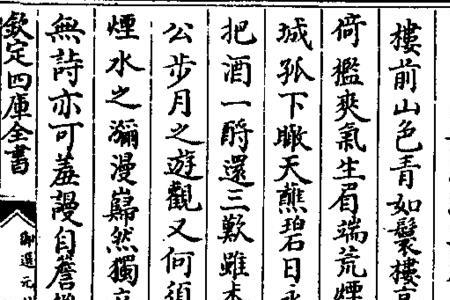 樓前山色青如鬟樓
倚檻爽氣生眉端荒煙
城孤下瞰天蘸碧日
把酒一酹還三歎雖
公步月之遊觀又何須
煙水之瀰漫巋然獨
無詩亦可羞謾自詹
欽定四庫全書
御選元